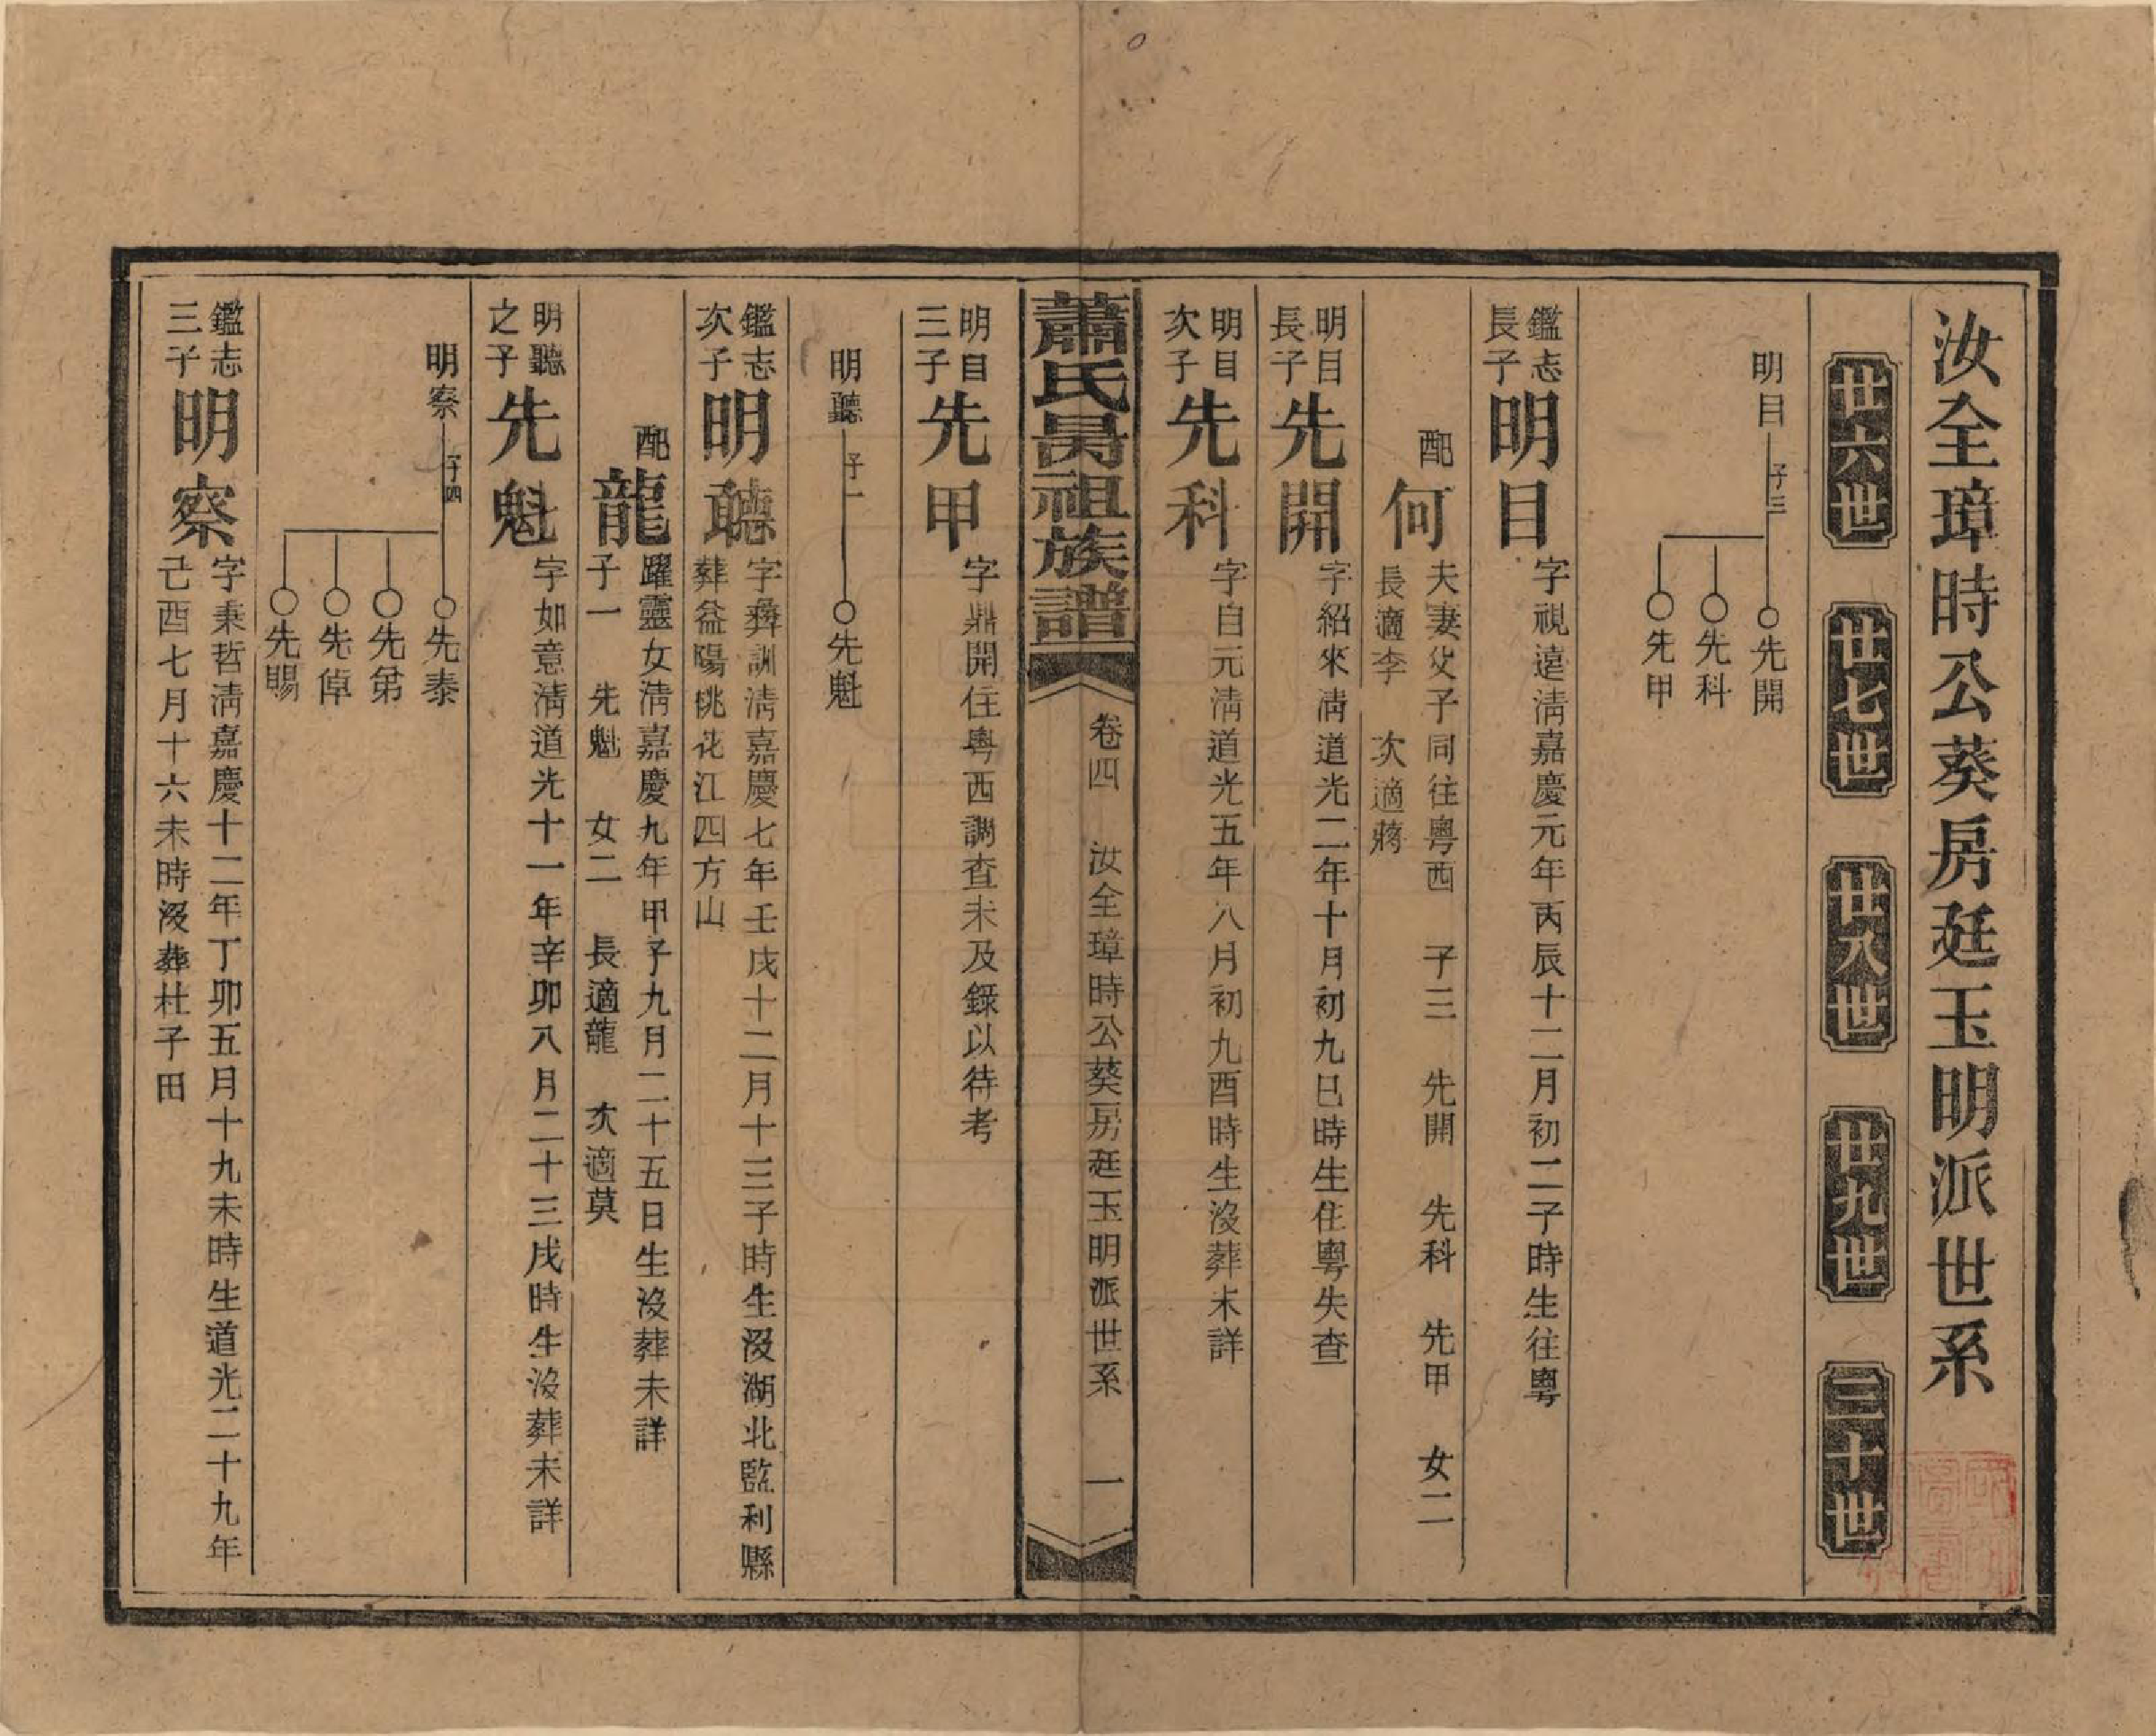 汝全璋時公葵房廷玉明派世系
廿六世 廿七世 廿八世 廿九世 三十世
明目 子三 先開 先科 先甲
鑑志長子 明目 字視遠清嘉慶元年丙辰十二月初二子時生往粵
配何 夫妻父子同往粵西 子三 先開 先科 先甲 女二
長適李 次適蔣
明目長子 先開 字紹來清道光二年十月初九巳時生住粵失查
明目次子 先科 字自元清道光五年八月初九酉時生沒葬未詳
蕭氏昺祖族譜 卷四 汝全璋時公葵房廷玉明派世系 一
明目三子 先甲 字鼎開住粵西調查未及錄以待考
明聽 子一 先魁
鑑志次子 明聽 字彝訓清嘉慶七年壬戌十二月十三子時生沒湖北監利縣
葬益陽桃花江四方山
配龍 躍靈女清嘉慶九年甲子九月二十五日生沒葬未詳
子一 先魁 女二 長適龍 次適莫
明聽之子 先魁 字如意清道光十一年辛卯八月二十三戌時生沒葬未詳
明察 子四 先泰 先弟 先倬 先賜
鑑志三子 明察 字秉哲清嘉慶十二年丁卯五月十九未時生道光二十九年
己酉七月十六未時沒葬杜子田